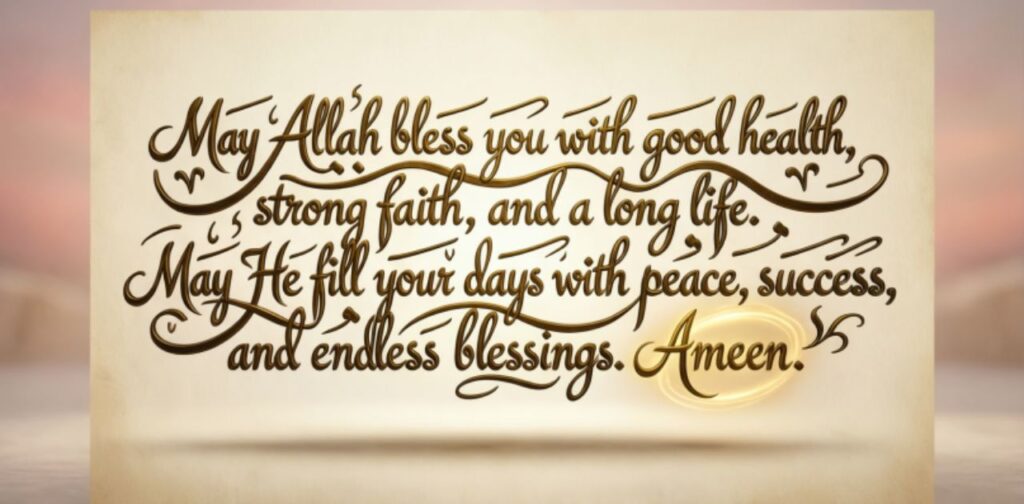 May Allah bless you with good health,
strong faith, and a long life.
May He fill your days with peace, success,
and endless blessings. Ameen.